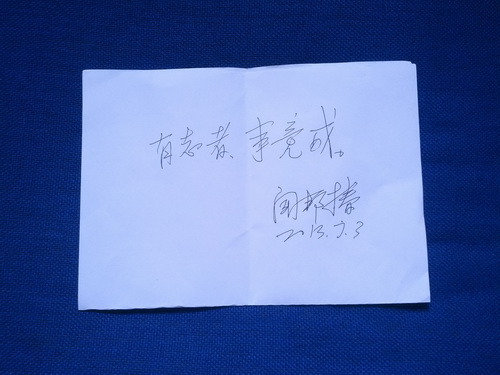 有志者、事竟成。
闻邦椿
2013.7.3